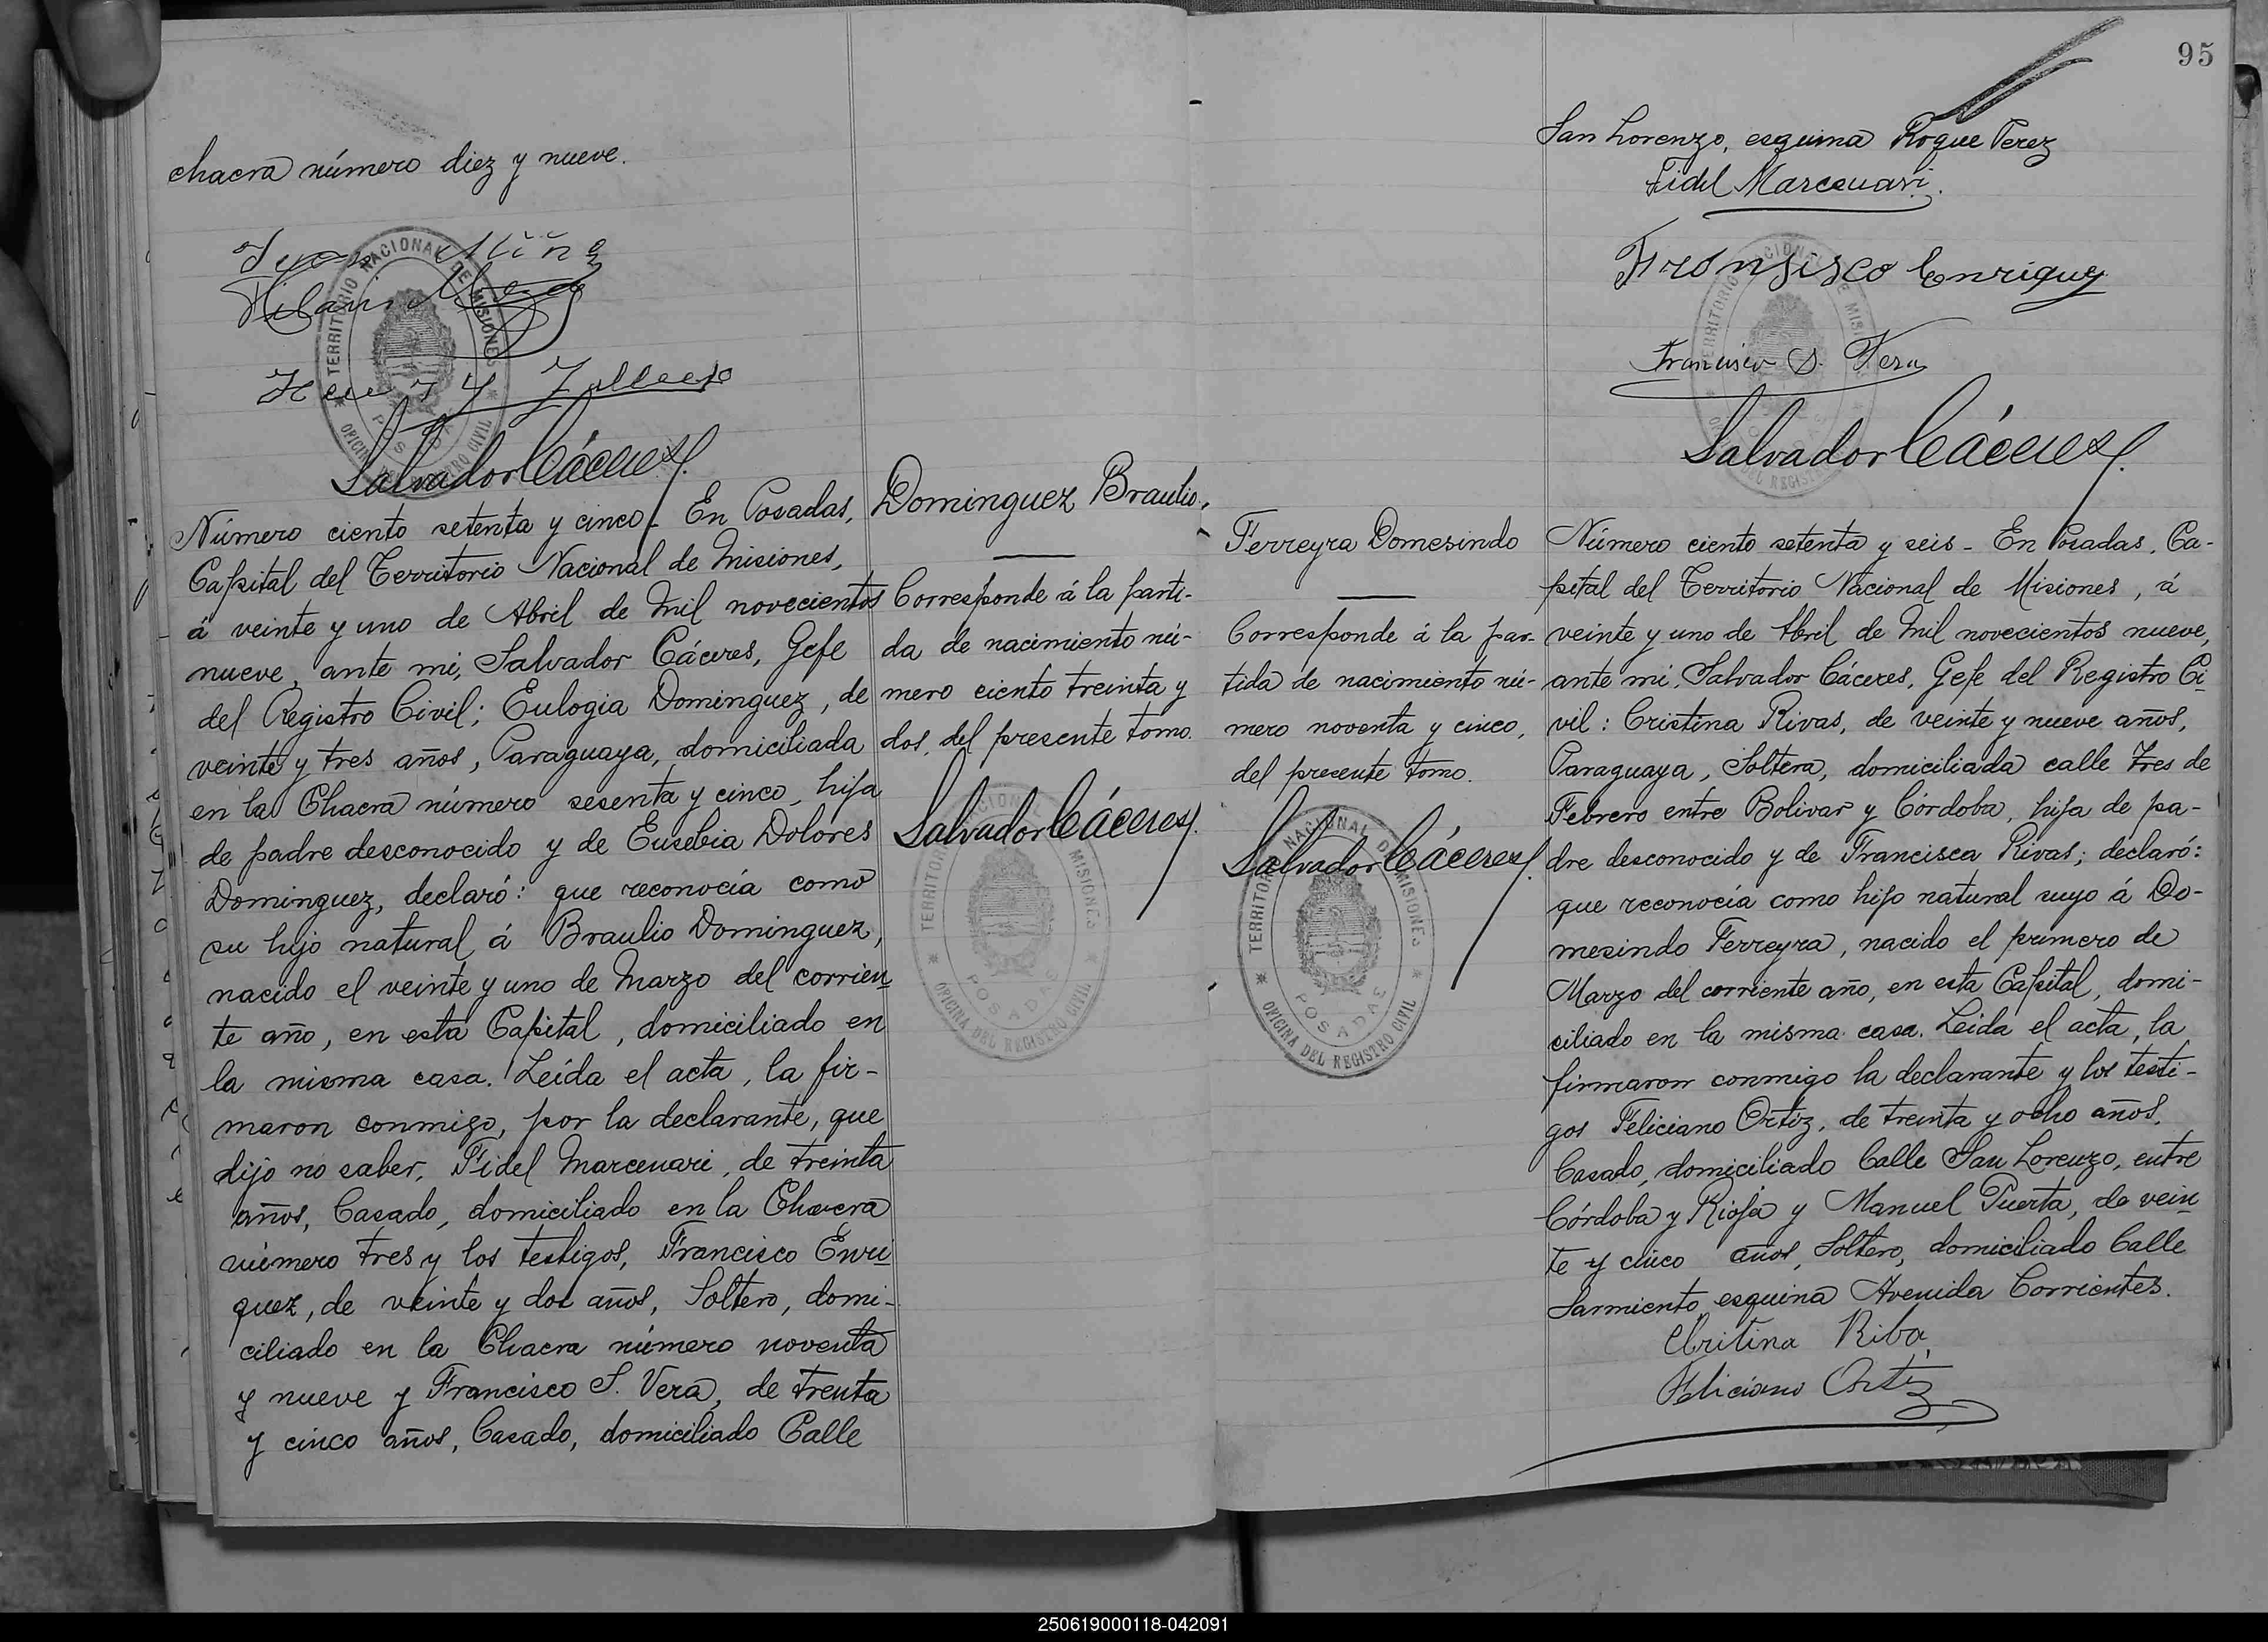 chacra número diez y nueve.
Salvador Cáceres
Número ciento setenta y cinco. En Posadas,
Capital del Territorio Nacional de Misiones,
á veinte y uno de Abril de mil novecientos
nueve, ante mi, Salvador Cáceres, Gefe
del Registro Civil; Eulogia Dominguez, de
veinte y tres años, Paraguaya, domiciliada
en la Chacra número sesenta y cinco, hija
de padre desconocido y de Eusebia Dolores
Dominguez, declaró: que reconocía como
su hijo natural á Braulio Dominguez,
nacido el veinte y uno de Marzo del corrien
te año, en esta Capital, domiciliado en
la misma casa. Leída el acta, la fir-
maron conmigo, por la declarante, que
dijo no saber, Fidel Marcenari, de treinta
años, Casado, domiciliado en la Chacra
número tres y los testigos, Francisco Enri
quez, de veinte y dos años, Soltero, domi-
ciliado en la Chacra número noventa
y nueve y Francisco S. Vera, de trenta
y cinco años, Casado, domiciliado Calle
Dominguez Braulio.
Corresponde á la parti-
da de nacimiento nú-
mero ciento treinta y
dos, del presente tomo.
Salvador Cáceres
TERRITORIO NACIONAL DE MISIONES
POSADAS
OFICINA DEL REGISTRO CIVIL
95
San Lorenzo, esquina Roque Perez
Fidel Marcenari.
Fronsisco Enriquez
Francisco S. Vera
Salvador Cáceres
Ferreyra Domesindo
Corresponde á la par-
tida de nacimiento nú-
mero noventa y cinco,
del presente tomo.
Salvador Cáceres
TERRITORIO NACIONAL DE MISIONES
POSADAS
OFICINA DEL REGISTRO CIVIL
Número ciento setenta y seis - En Posadas, Ca-
pital del Territorio Nacional de Misiones, á
veinte y uno de Abril de mil novecientos nueve,
ante mi, Salvador Cáceres, Gefe del Registro Ci
vil: Cristina Rivas, de veinte y nueve años,
Paraguaya, Soltera, domiciliada calle Tres de
Febrero entre Bolivar y Córdoba, hija de pa-
dre desconocido y de Francisca Rivas; declaró:
que reconocía como hijo natural suyo á Do-
mesindo Ferreyra, nacido el primero de
Marzo del corriente año, en esta Capital, domi-
ciliado en la misma casa. Leída el acta, la
firmaron conmigo la declarante y los testi-
gos Feliciano Ortiz, de treinta y ocho años,
Casado, domiciliado Calle San Lorenzo, entre
Córdoba y Rioja y Manuel Puerta, de vein
te y cinco años, Soltero, domiciliado Calle
Sarmiento esquina Avenida Corrientes.
Critina Riba
Feliciano Ortiz
250619000118-042091